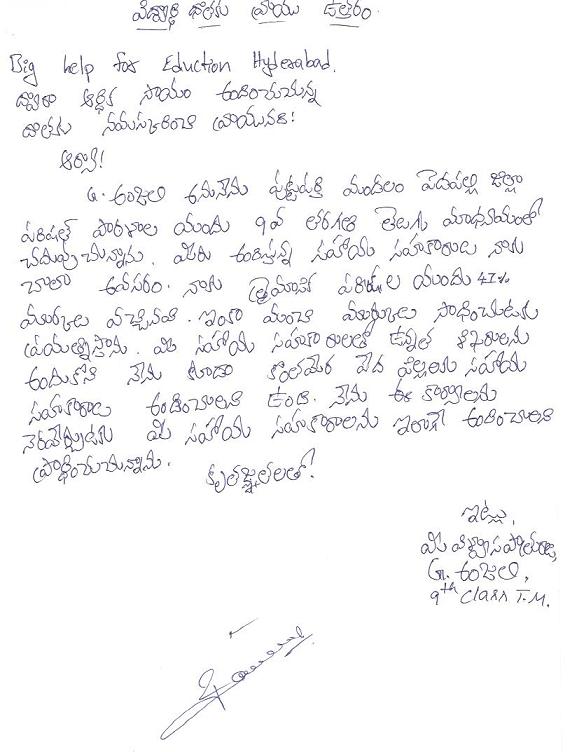 విద్యార్థి దాతకు వ్రాయు ఉత్తరం.
Big help for Eduction Hyderabad.
ద్వారా ఆర్థిక సాయం అందించుచున్న
దాతకు నమస్కరించి వ్రాయునది!
ఆర్యా!
G. అంజలి అనునేను పుట్టపర్తి మండలం పెదపల్లి జిల్లా
పరిషత్ పాఠశాల యందు 9వ తరగతి తెలుగు మాధ్యమంలో
చదువుచున్నాను. మీరు అందిస్తున్న సహాయ సహకారాలు నాకు
చాలా అవసరం. నాకు త్రైమాసిక పరీక్షల యందు 47%
మార్కులు వచ్చినవి. ఇంకా మంచి మార్కులు సాధించుటకు
ప్రయత్నిస్తాను. మీ సహాయ సహకారాలతో ఉన్నత శిఖరాలను
అందుకొని నేను కూడా కొంతమంది పేద పిల్లలకు సహాయ
సహకారాలు అందించాలని ఉంది. నేను ఈ కార్యాలను
నెరవేర్చుటకు మీ సహాయ సహకారాలను ఇలాగే అందించాలని
ప్రార్థించుచున్నాను.
కృతజ్ఞతలతో!
ఇట్లు,
మీ విశ్వాసపాత్రురాలు,
G. అంజలి,
9th Class T.M.